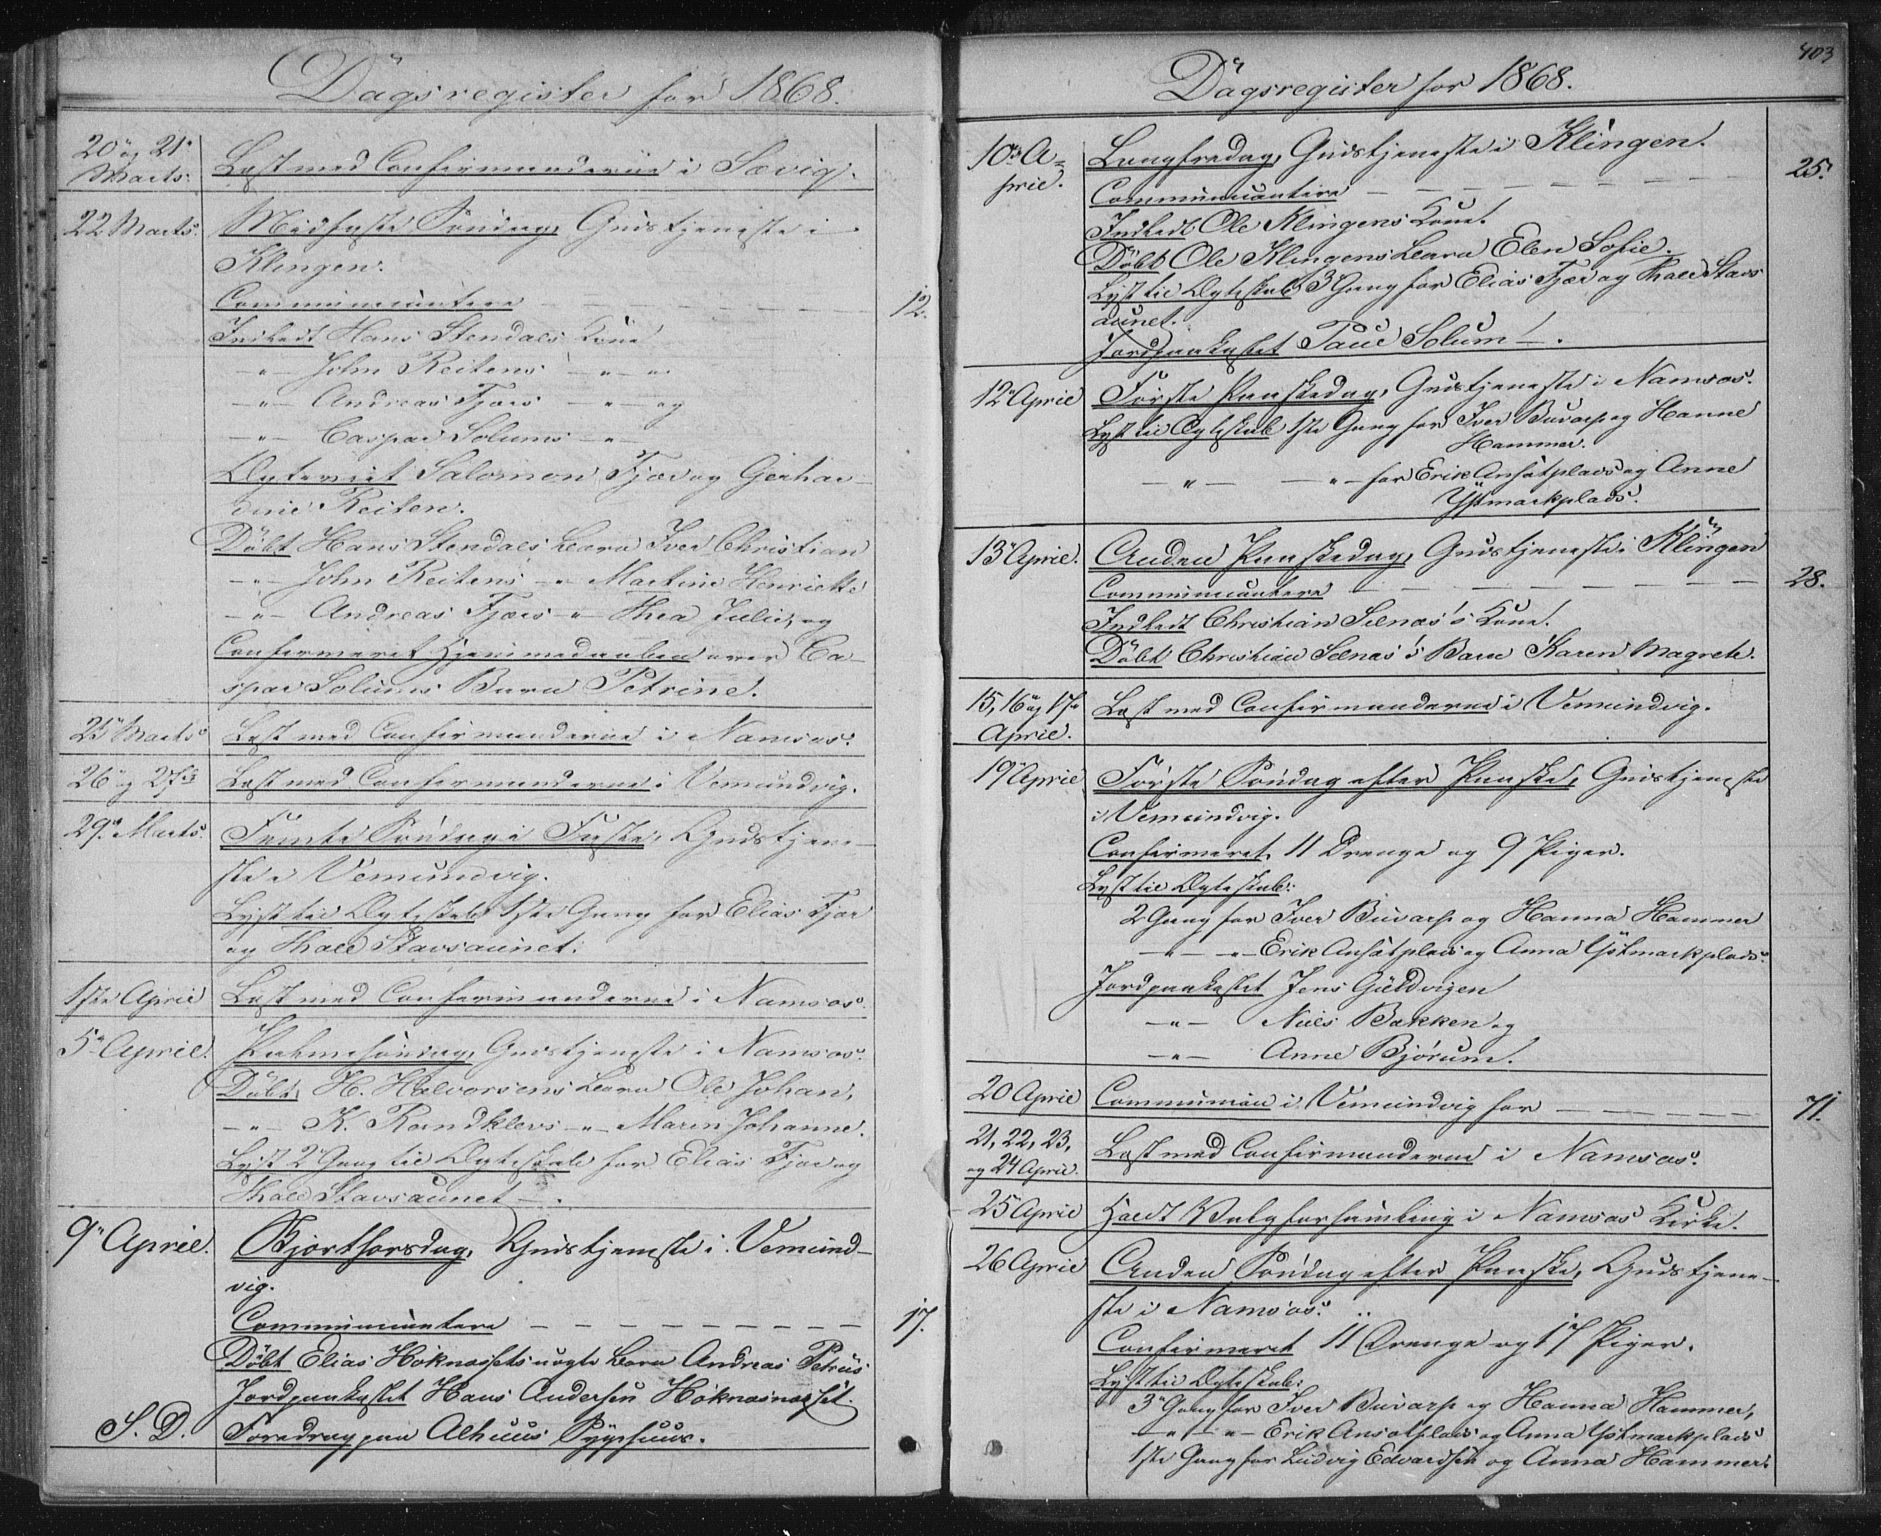 Dagsregister for 1868.
20 og 21 Marts. Læst med Confirmanderne i Sævig.
22 Marts. Midfaste Söndag, Gudstjeneste i
Klingen.
Communicantere — — — — 12.
Indledt Hans Stendals Kone
—"— John Reitens —"—
—"— Andreas Fjærs —"— og
—"— Caspar Solums —"—
Ægteviet Salomon Fjær og Gerhar-
dine Reiten.
Döbt Hans Stendals Barn Iver Christian
—"— John Reitens —"— Martine Henriette
—"— Andreas Fjærs —"— Thea Julie, og
Confirmeret Hjemmedaaben over Ca-
spar Solums Barn Petrine.
25 Marts. Læst med Confirmanderne i Namsos.
26 og 27 Læst med Confirmanderne i Vemundvig.
29 Marts. Femte Söndag i Faste, Gudstjene-
ste i Vemundvig.
Lyst til Ægteskab 1ste Gang for Elias Fjær
og Thale Stavsaunet.
1ste April Læst med Confirmanderne i Namsos.
5 April. Palmesöndag, Gudstjeneste i Namsos.
Döbt, H. Halvorsens Barn Ole Johan,
—"— K. Randklevs —"— Maren Johanne.
Lyst 2 Gang til Ægteskab for Elias Fjær og
Thale Stavsaunet —.
9 April. Skjærthorsdag, Gudstjeneste i Vemund-
vig.
Communicantere — — — — 17.
Döbt Elias Höknæssets uægte Barn Andreas Petrus
Jordpaakastet Hans Andersen Höknæsnæsset.
S. D. Foredrag paa Sygehuus.
403
Dagsregister for 1868.
10 A-
pril. Langfredag, Gudstjeneste i Klingen.
Communicantere — — — — 25.
Indledt Ole Klingens Kone.
Döbt Ole Klingens Barn Elen Sofie.
Lyst til Ægteskab 3 Gang for Elias Fjær og Thale Stavs
aunet.
Jordpaakastet Paul Solum —.
12 April Förste Paaskedag, Gudstjeneste i Namsos.
Lyst til Ægteskab 1ste Gang for Iver Buvarp og Hanne
Hammer.
—"— —"— for Erik Ansåtplads og Anne
Ystmarkplads.
13 April. Anden Paaskedag, Gudstjeneste i Klingen
Communicantere — — — — 28.
Indledt Christian Selnæs's Kone.
Döbt Christian Selnæs's Barn Karen Magrete.
15, 16 og 17 April. Læst med Confirmanderne i Vemundvig.
19 April Förste Söndag efter Paaske, Gudstjeneste
i Vemundvig.
Confirmeret 11 Drenge og 9 Piger.
Lyst til Ægteskab:
2 Gang for Iver Buvarp og Hanna Hammer
—"— —"— Erik Ansåtplads og Anna Ystmarkplads.
Jordpaakastet Jens Guldvigen
—"— Niels Bakken og
—"— Anne Bjørum.
20 April Communion i Vemundvig for — — — — 71.
21, 22, 23,
og 24 April. Læst med Confirmanderne i Namsos.
25 April Holdt Valgforsamling i Namsos Kirke.
26 April Anden Söndag efter Paaske, Gudstjene-
ste i Namsos.
Confirmeret 11 Drenge og 17 Piger.
Lyst til Ægteskab:
3 Gang for Iver Buvarp og Hanna Hammer,
—"— —"— Erik Ansatplads og Anna Ystmarkplads
1ste Gang for Ludvig Edvardsen og Anna Hammer.